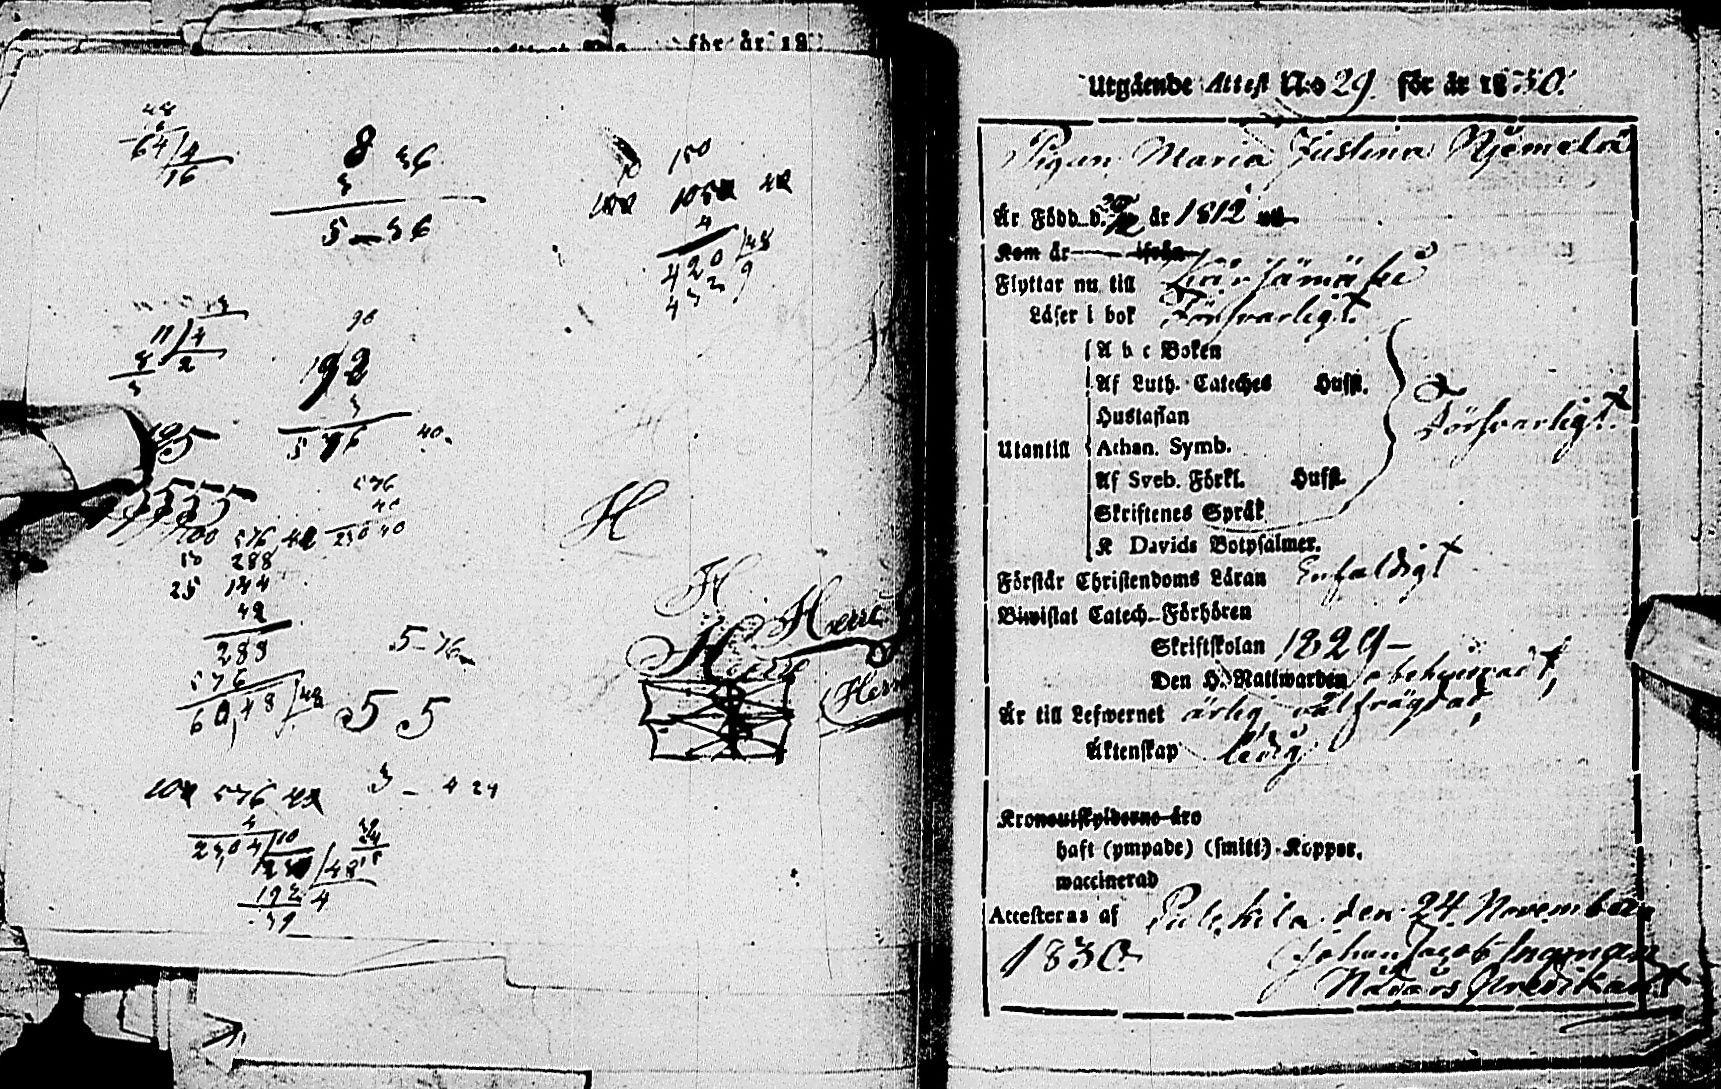 för år 18
48
64 4
16
8 36
3
5 — 36
150
100 1050 42
4
420 48
432 9
3
11 4
8 2
3
90
192
3
576 40.
195
5555
100 576 42
50 288
25 144
42
288
576
60,48 48
576
40
230 40
5-76
55
100 576 42
4
2304 10
192 4
39
3 - 4 24
H
H
Herre
Herre
Herre
Utgående Attest N:o 29. för år 1830.
Pigan Maria Justina Njemelä
Är Född d. år 1812 uti
Kom år ifrån
Flyttar nu till Kärsämäki
Läser i bok Försvarligt.
A b c Boken
Af Luth. Cateches Husfl.
Hustaflan
Utantill Athan. Symb. Försvarligt.
Af Sveb. Förkl. Husfl.
Skriftenes Språk
K Davids Botpsalmer.
Förstår Christendoms Läran Enfaldigt
Biwistat Catech. Förhören
Skriftskolan 1829 -
Den H. Nattwarden obehindrad,
Är till Lefwernet ärlig, välfrägdad,
Äktenskap ledig
Kronoutskylderne äro
haft (ympade) (smitt) Koppor.
waccinerad
Attesteras af Pulkila den 24 November
1830. Johan Jacob Ingman
Nådårs Predikant